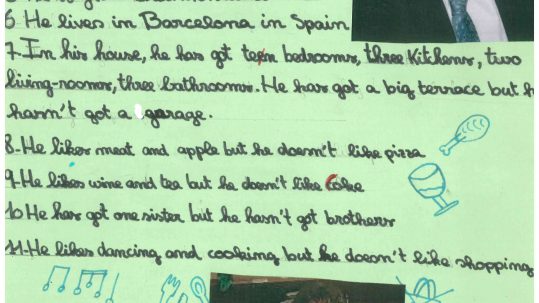 6 He lives in Barcelona in Spain
7. In his house, he has got ten bedrooms, three Kitchens, two
living-rooms, three bathrooms. He has got a big terrace but h
hasn't got a garage.
8.-He likes meat and apple but he doesn't like pizza
9-He likes wine and tea but he doesn't like Coke
10 He has got one sister but he hasn't got brothers
11.-He likes dancing and cooking but he doesn't like shopping